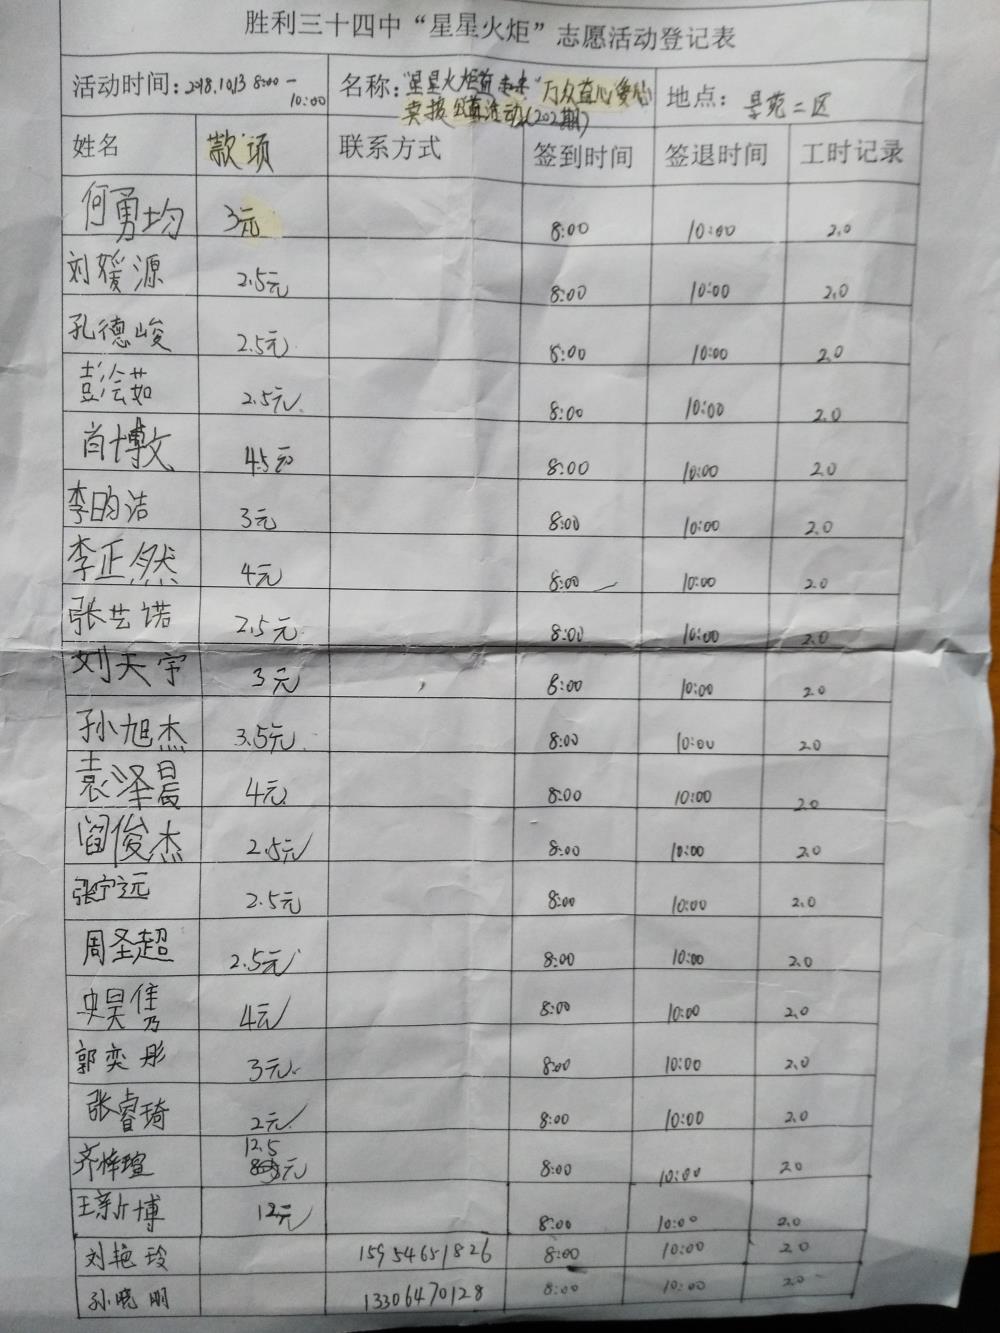 胜利三十四中“星星火炬”志愿活动登记表
活动时间：2018.10.13 8:00-10:00 名称：“星星火炬 未来”万众益心 爱心 地点：景苑二区
卖报公益活动(202期)
姓名 款项 联系方式 签到时间 签退时间 工时记录
何勇均 3元 8:00 10:00 2.0
刘媛源 2.5元 8:00 10:00 2.0
孔德峻 2.5元 8:00 10:00 2.0
彭会茹 2.5元 8:00 10:00 2.0
肖博文 4.5元 8:00 10:00 2.0
李昀洁 3元 8:00 10:00 2.0
李正然 4元 8:00 10:00 2.0
张艺诺 2.5元 8:00 10:00 2.0
刘天宇 3元 8:00 10:00 2.0
孙旭杰 3.5元 8:00 10:00 2.0
袁泽晨 4元 8:00 10:00 2.0
阎俊杰 2.5元 8:00 10:00 2.0
张宁远 2.5元 8:00 10:00 2.0
周圣超 2.5元 8:00 10:00 2.0
史昊隽 4元 8:00 10:00 2.0
郭奕彤 3元 8:00 10:00 2.0
张睿琦 2元 8:00 10:00 2.0
齐梓瑄 12.5元 8:00 10:00 2.0
王新博 12元 8:00 10:00 2.0
刘艳玲 15954651826 8:00 10:00 2.0
孙晓明 13306470128 8:00 10:00 2.0